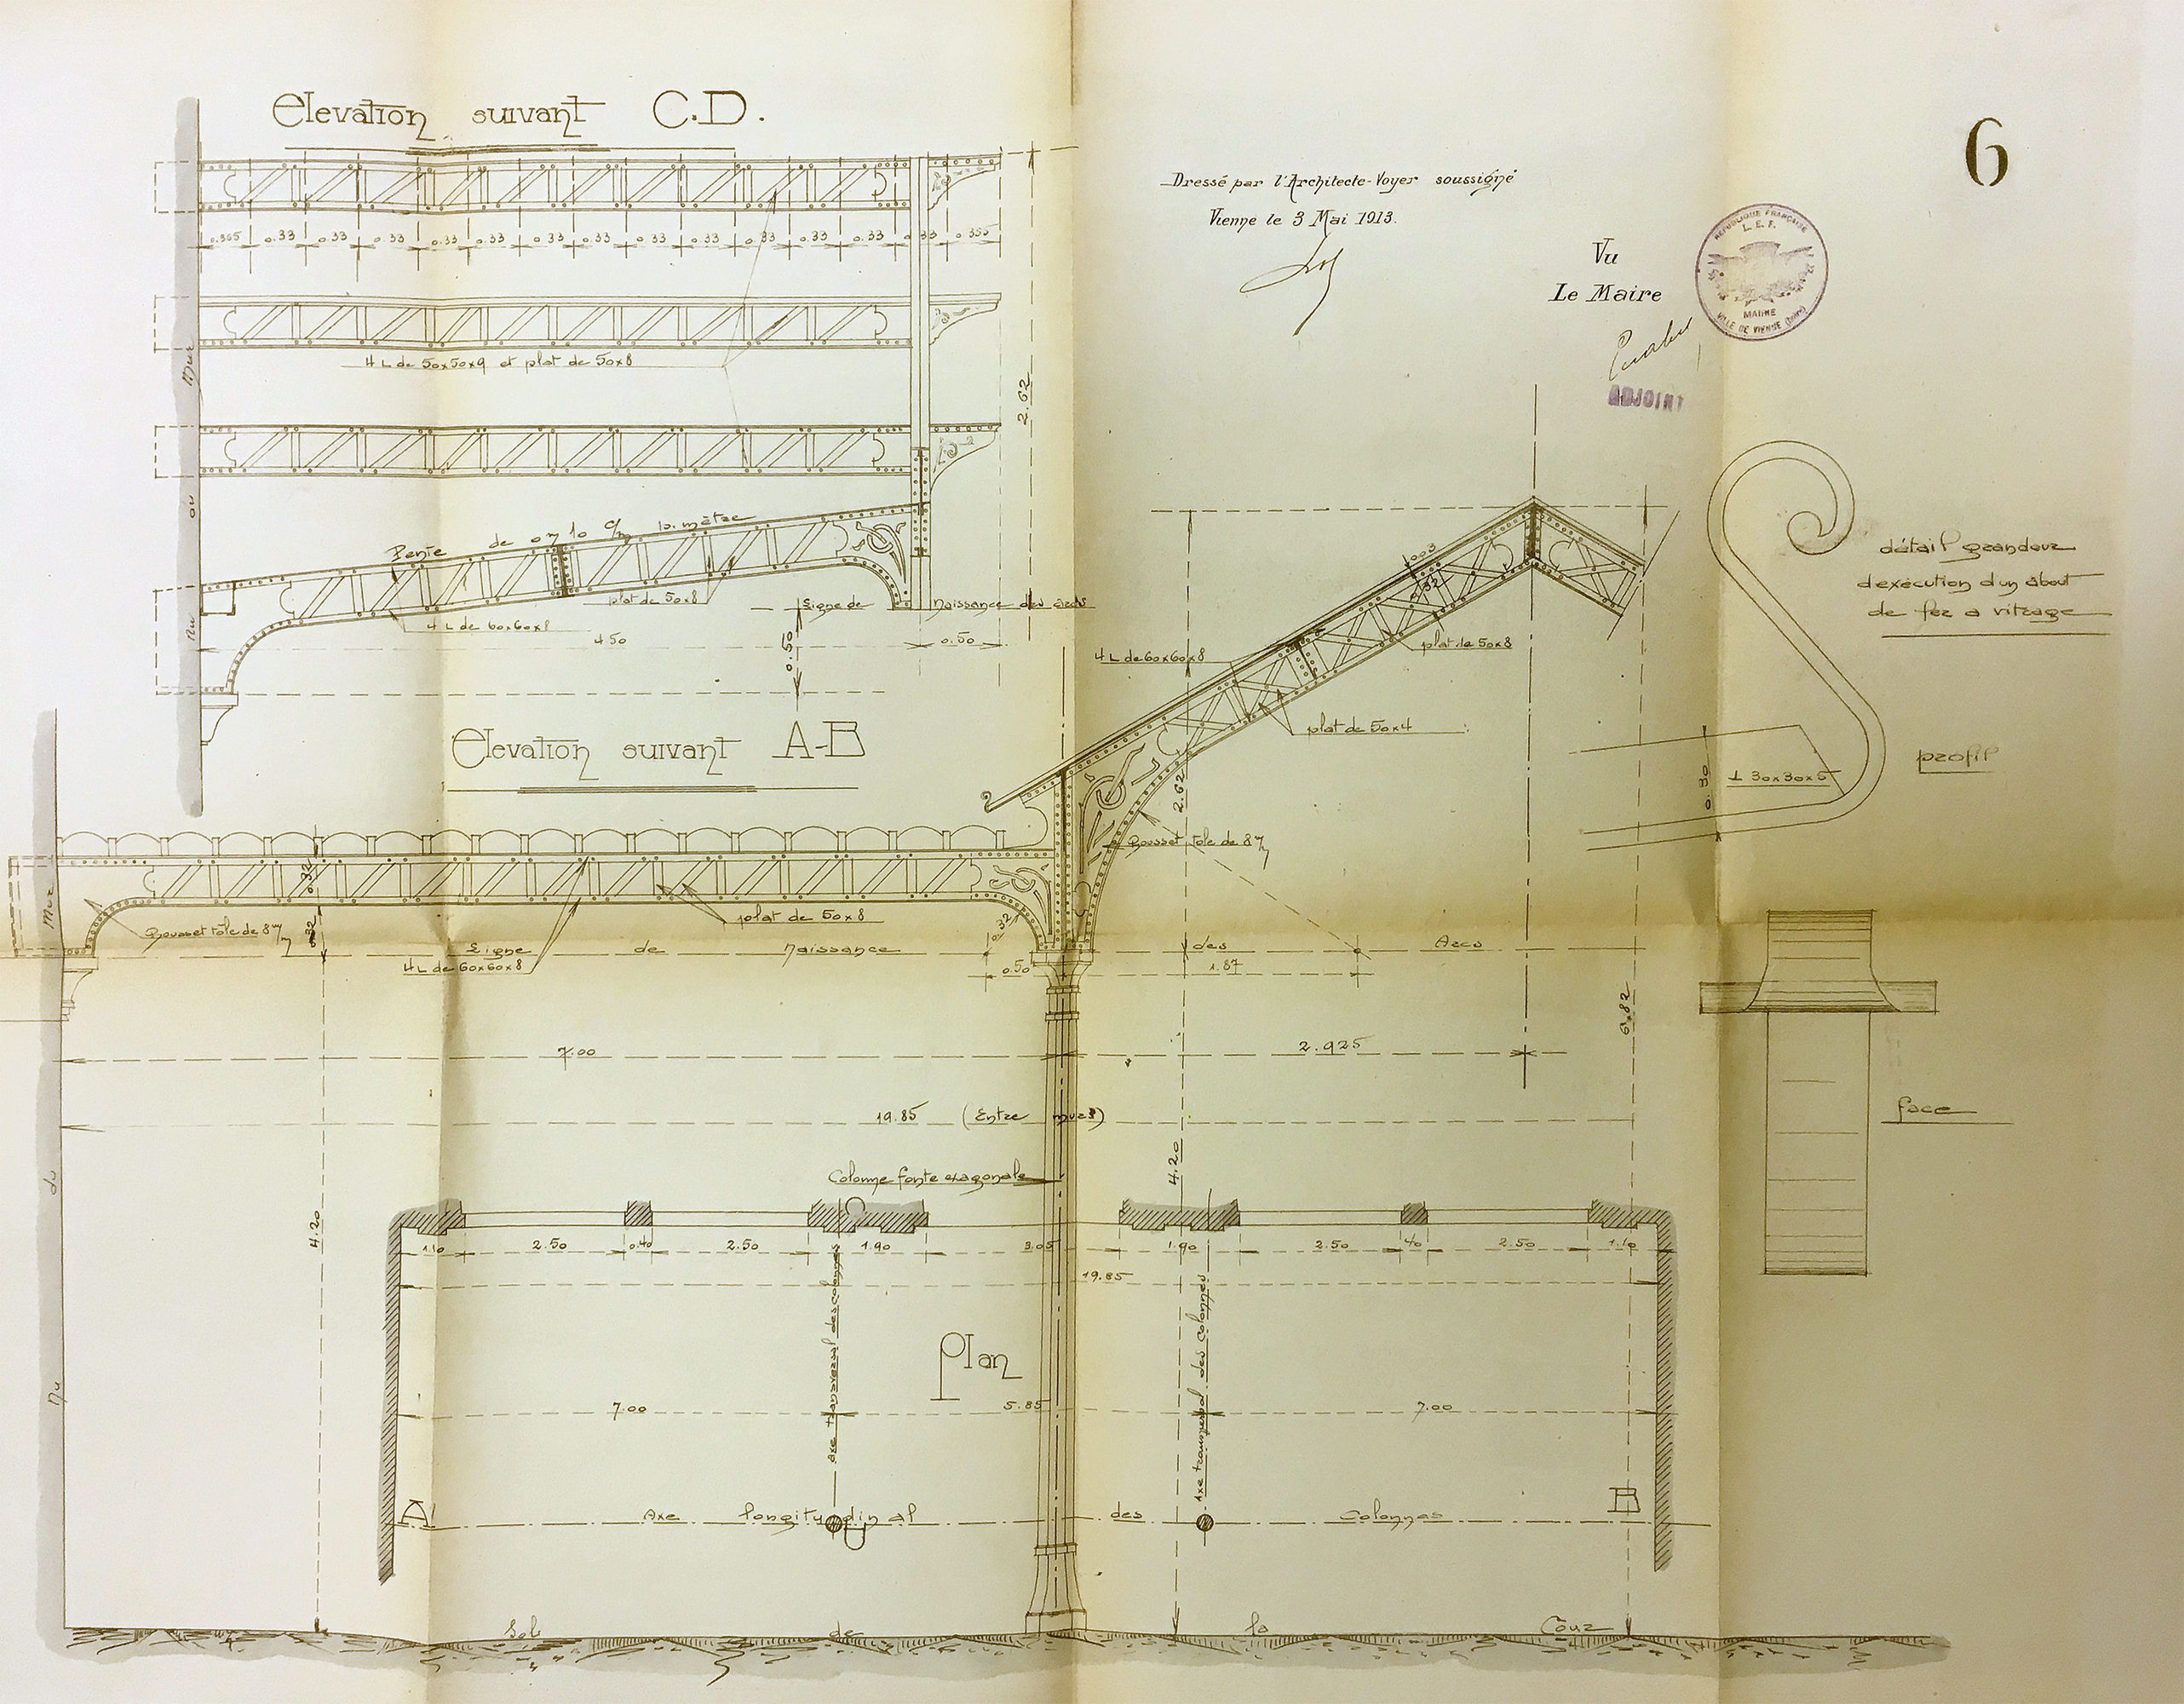 Elevation suivant C.D.
6
Dressé par l'Architecte-Voyer soussigné
Vienne le 3 Mai 1913.
Vu
Le Maire
REPUBLIQUE FRANÇAISE
L.E.F.
MAIRIE
VILLE DE VIENNE (Isère)
ADJOINT
0.365 0.33 0.33 0.33 0.33 0.33 0.33 0.33 0.33 0.33 0.33 0.33 0.33 0.33 0.355
4 L de 50x50x9 et plat de 50x8
2.62
Nu du Mur
Pente de 0m10 c/m p. mètre
plat de 50x8
4 L de 60x60x8
Ligne de Naissance des arcs
4.50
0.50
0.50
Elevation suivant A-B
4 L de 60x60x8
plat de 50x8
plat de 50x4
2.62
Gousset tôle de 8 m/m
détail grandeur
d'exécution d'un about
de fer a vitrage
profil
0.30
⊥ 30x30x5
face
0.32
0.32
Gousset tôle de 8 m/m
plat de 50x8
0.32
Ligne de Naissance des Arcs
4 L de 60x60x8
0.50
1.87
7.00
2.925
6.82
19.85 (Entre murs)
Colonne fonte exagonale
4.20
4.20
1.10 2.50 0.40 2.50 1.90 3.05 1.90 2.50 40 2.50 1.10
19.85
axe transversal des colonnes
axe transversal des colonnes
Plan
7.00
5.85
7.00
A
B
Axe longitudinal des Colonnes
Nu du Mur
Sol de la Cour